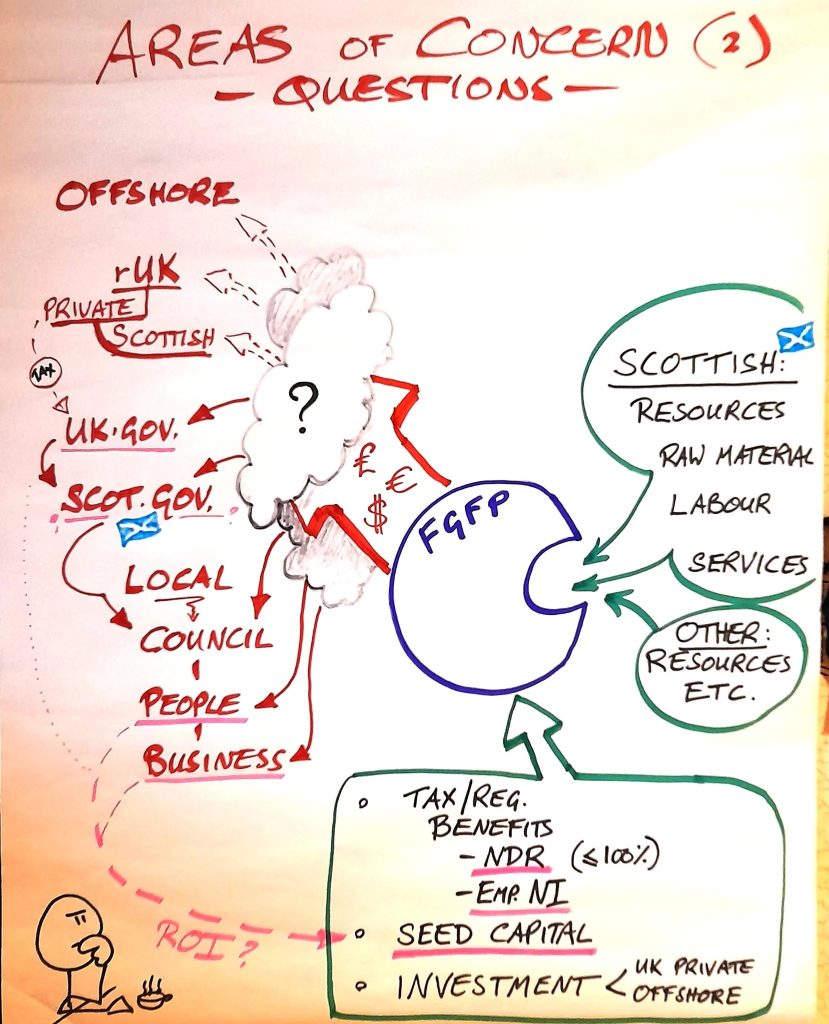 AREAS OF CONCERN (2)
— QUESTIONS —
OFFSHORE
rUK
PRIVATE
SCOTTISH
TAX
UK.GOV.
SCOT.GOV.
LOCAL
COUNCIL
PEOPLE
BUSINESS
?
£
€
$
FGFP
SCOTTISH:
RESOURCES
RAW MATERIAL
LABOUR
SERVICES
OTHER:
RESOURCES
ETC.
• TAX/REG.
BENEFITS
- NDR (≤100%)
- EMP. NI
• SEED CAPITAL
• INVESTMENT < UK PRIVATE
OFFSHORE
ROI?